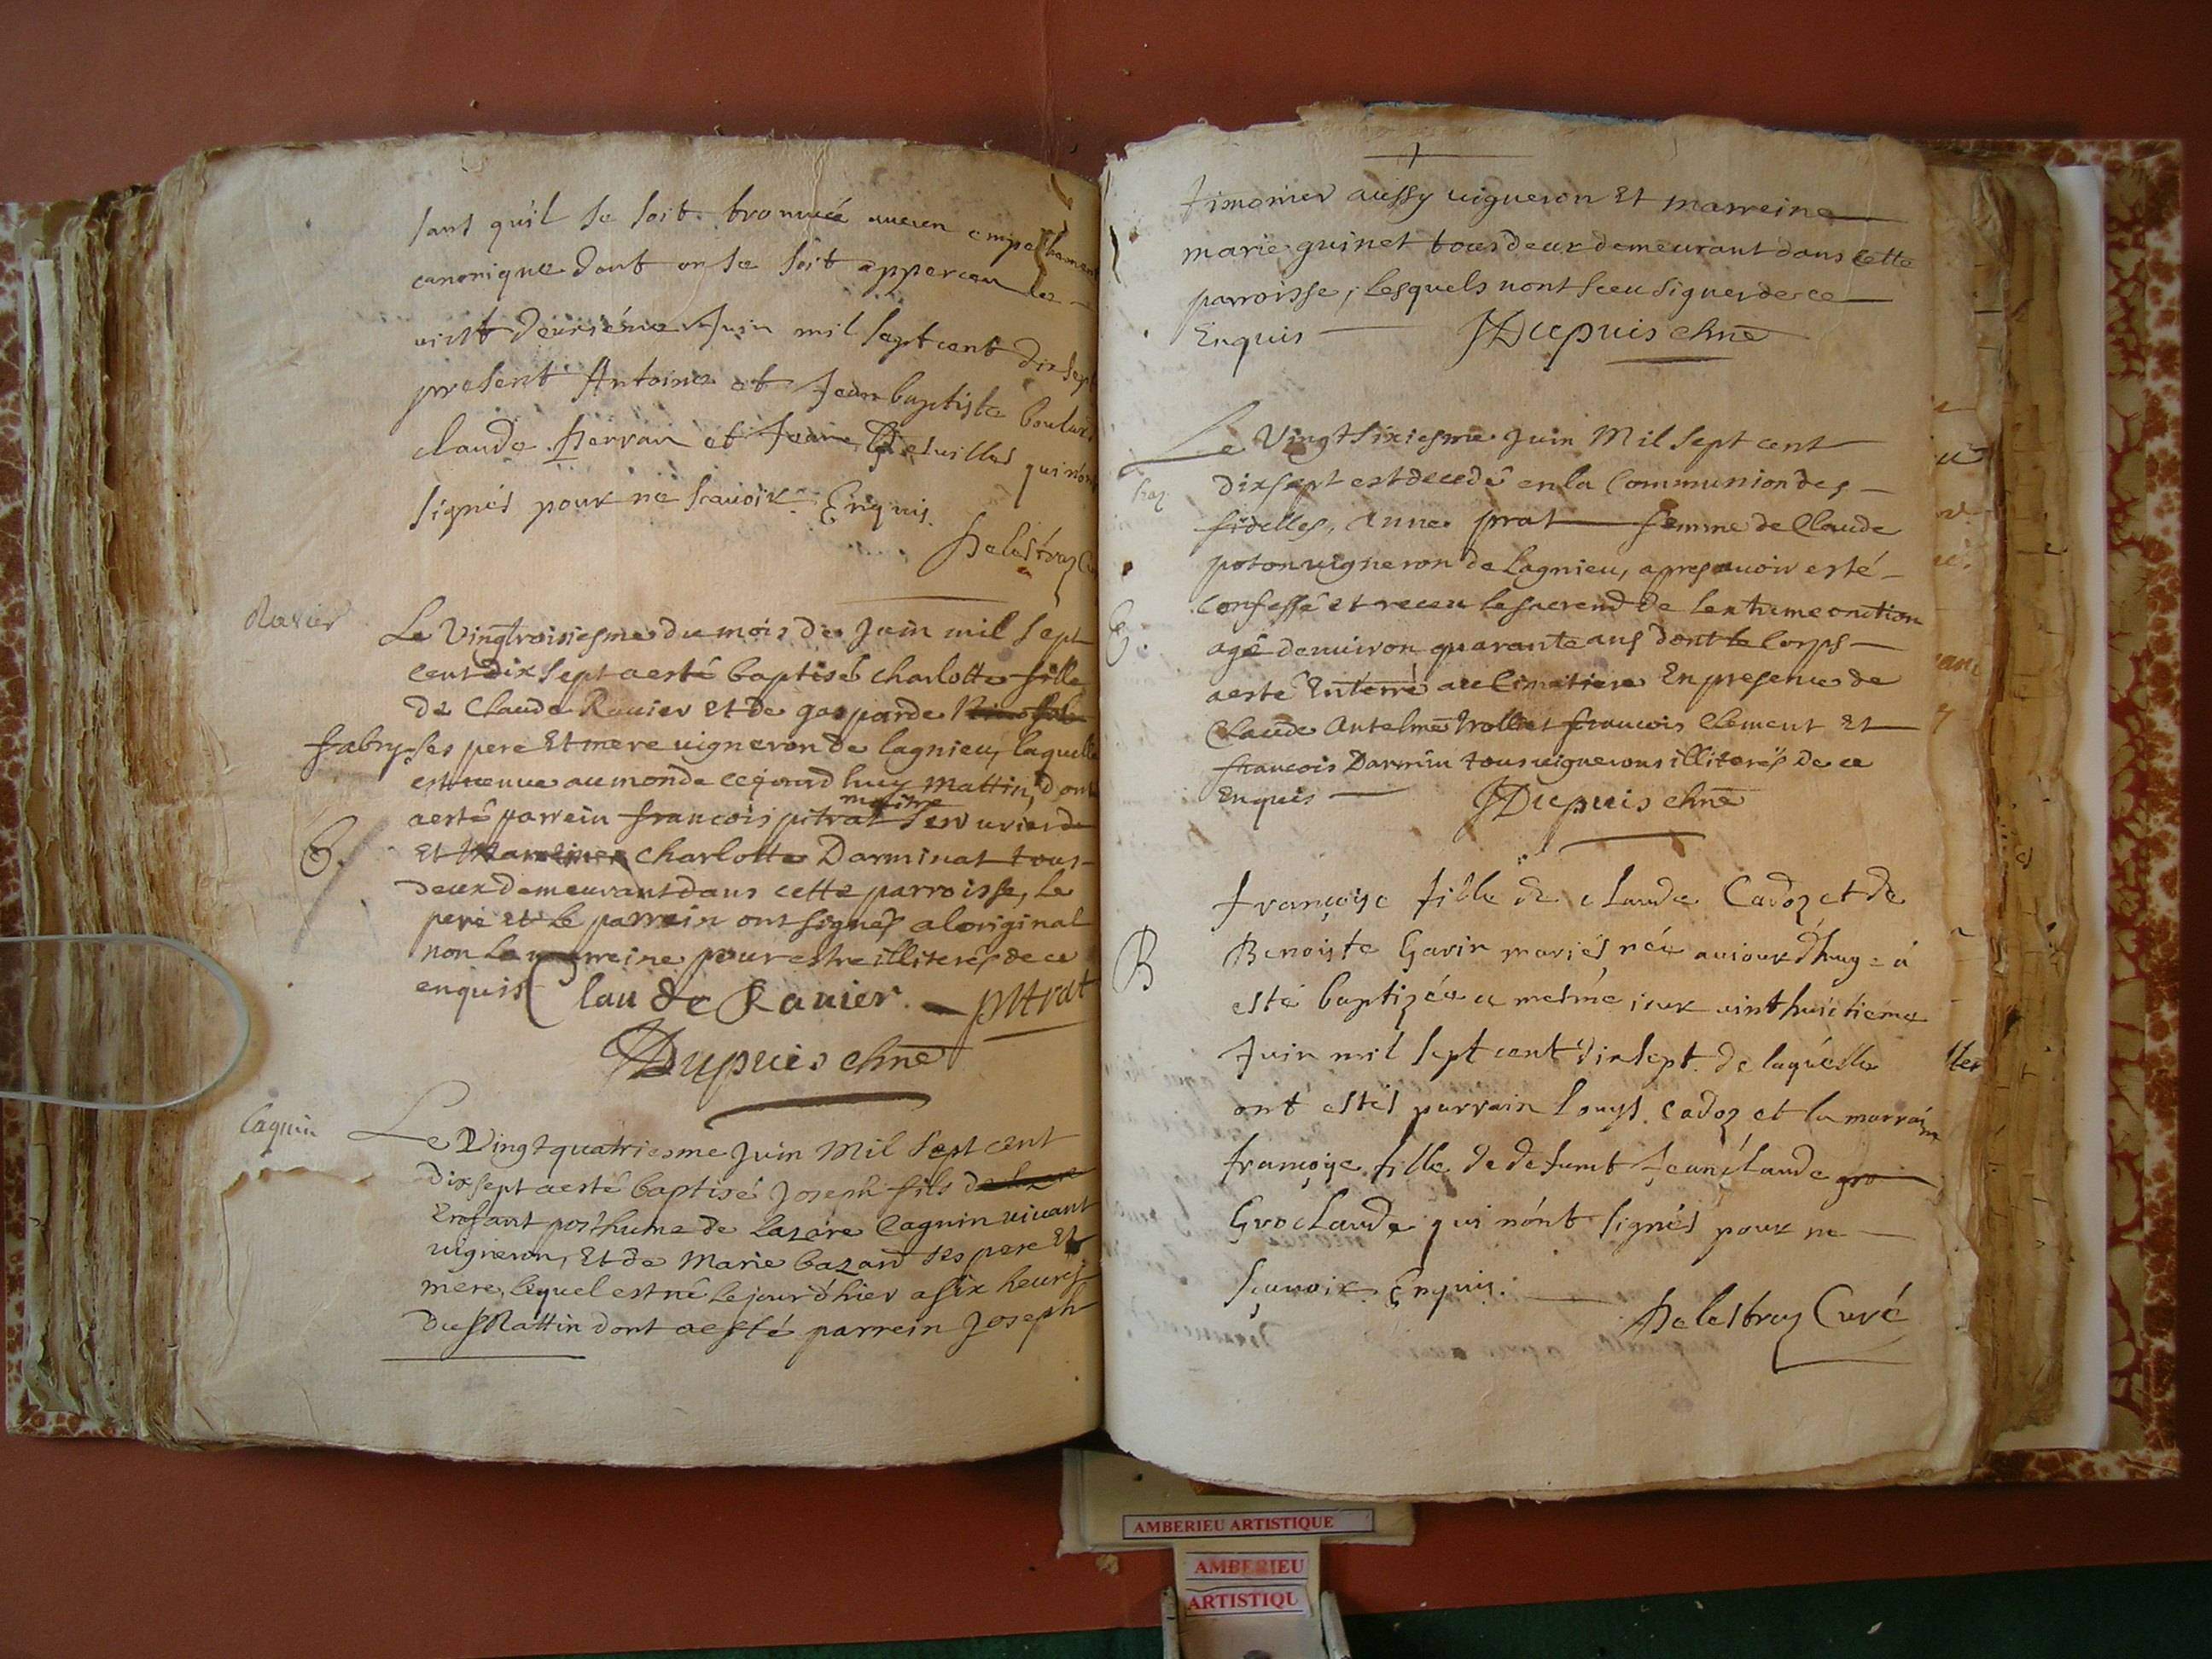 sans qu'il se soit trouvéé aucun empeschement
canonique dont on se soit apperceu le
vint deuxiéme Juin mil sept cent dix sept
present Antoine et Jean baptiste
claude et qui n'ont
signés pour ne scavoir. Enquis.
Delestraz
Ravier
Le Vingtroisiesme du mois de Juin mil sept
cent dix sept a esté baptisé charlotte fille
de Claude Ravier et de gasparde
fabry ses pere Et mere vigneron de lagnieu, laquelle
est venue au monde cejourd huy mattin, dont
maitre
a esté parrein francois pitrat serrurier de
Et Marreine charlotte Darminat tous
deux demeurant dans cette parroisse, le
pere et le parrein ont signés a loriginal
non la marreine pour estre illiterés de ce
enquis Claude Ravier. pitrat
B.
JDupuis chne
Caguin
Le Vingt quatriesme Juin Mil sept cent
dix sept a esté baptisé Joseph fils
Enfant posthume de Lazare Caguin vivant
vigneron, Et de Marie bazard ses pere Et
mere, lequel est né le jour d'hier a six heures
du Mattin dont a esté parrein Joseph
timonier aussy vigneron Et marreine
marie guinet tous deux demeurant dans cette
parroisse, lesquels nont sceu signer de ce
Enquis JDupuis chne
Le Vingt sixiesme Juin Mil sept cent
dix sept est decedé en la Communion des
fidelles, Anne prat femme de Claude
poton vigneron de Lagnieu, apres avoir esté
B.
confessé et receu le sacremt de lextreme onction
agé denviron quarante ans dont le Corps
a esté Enterré au Cimetiere En presence de
Claude Antelme trolliet francois Clement Et
francois Darmin tous vignerons illiterés de ce
Enquis JDupuis chne
françoise fille de claude Cadoz et de
B
Benoiste Gavin mariés née aujourd'huy a
esté baptizée a mesme jour vint huictiéme
Juin mil sept cent dix sept. de laquelle
ont estés parrain Louys. Cadoz et la marraine
françoise fille de defunct Jean claude gro
Groclaude qui n'ont signés pour ne
scavoir Enquis.
Delestraz Curé
AMBERIEU ARTISTIQUE
AMBERIEU
ARTISTIQU